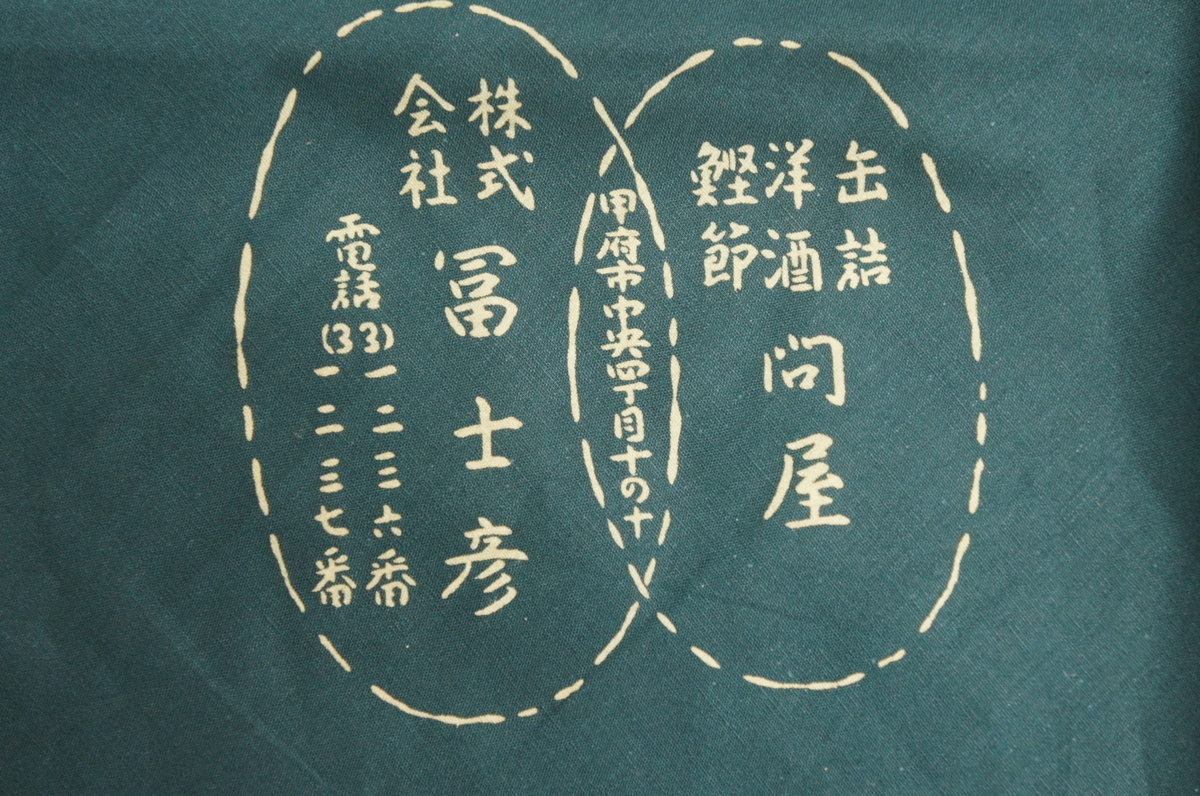 缶詰
洋酒
鰹節
問屋
甲府市中央四丁目十の十
株式
会社
冨士彦
電話(33)
一二三六番
一二三七番